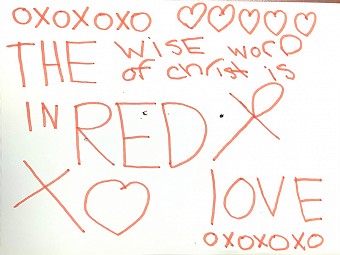 OXOXOXO ♡♡♡♡♡
THE WISE WORD
of christ is
IN RED X
X♡ lOVE
OXOXOXO